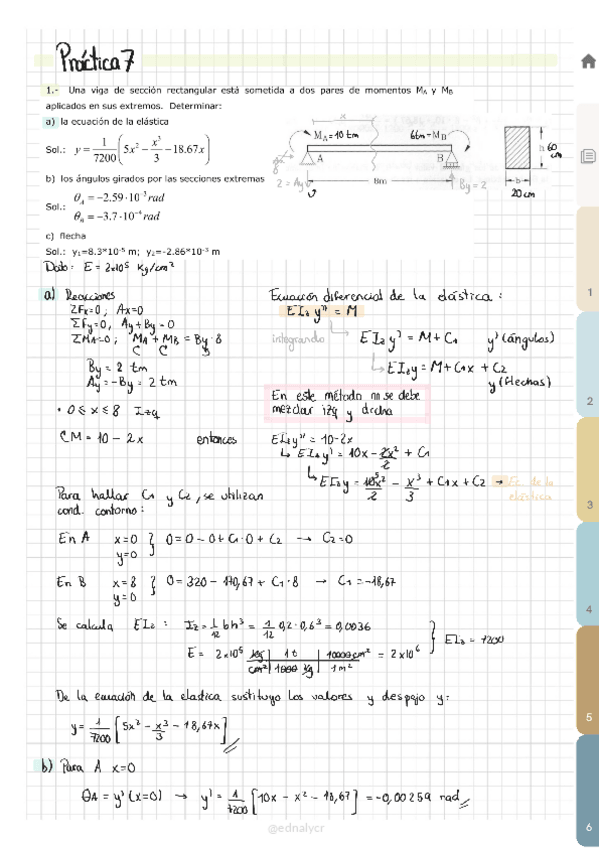 Práctica 7
1.- Una viga de sección rectangular está sometida a dos pares de momentos MA y MB
aplicados en sus extremos. Determinar:
a) la ecuación de la elástica
Sol.: y = 1/7200 (5x² − x³/3 − 18.67x)
x
MA = 10 tm
6tm = MB
A
B
8m
By = 2
h 60 cm
b
20 cm
b) los ángulos girados por las secciones extremas
Sol.: θA = −2.59·10⁻³ rad
θB = −3.7·10⁻⁴ rad
c) flecha
Sol.: y₁=8.3*10⁻⁵ m; y₂=-2.86*10⁻³ m
Dato: E = 2x10⁵ Kg/cm²
a) Reacciones
ΣFx=0; Ax=0
ΣFy=0, Ay + By = 0
ΣMA=0; MA + MB = By·8
By = 2 tm
Ay = −By = 2 tm
· 0 ≤ x ≤ 8 Izq
CM = 10 − 2x entonces
Ecuación diferencial de la elástica:
EIz y'' = M
integrando
EIz y' = M + C1 y' (ángulos)
EIz y = M + C1x + C2
y (flechas)
En este método no se debe
mezclar izq y drcha
EIz y'' = 10-2x
EIz y' = 10x − 2x²/2 + C1
EIz y = 10x²/2 − x³/3 + C1x + C2 → Ec. de la
elástica
Para hallar C1 y C2, se utilizan
cond. contorno:
En A x=0 y=0 } 0 = 0 − 0 + C1·0 + C2 → C2=0
En B x=8 y=0 } 0 = 320 − 170,67 + C1·8 → C1 = −18,67
Se calcula EIz: Iz = 1/12 bh³ = 1/12 0,2·0,6³ = 0,0036
E = 2x10⁵ kg/cm² | 1t/1000 kg | 10000 cm²/1m² = 2x10⁶
} EIz = 7200
De la ecuación de la elastica sustituyo los valores y despejo y:
y = 1/7200 [5x² − x³/3 − 18,67x]
b) Para A x=0
θA = y' (x=0) → y' = 1/7200 [10x − x² − 18,67] = −0,00259 rad
@ednalycr
1
2
3
4
5
6